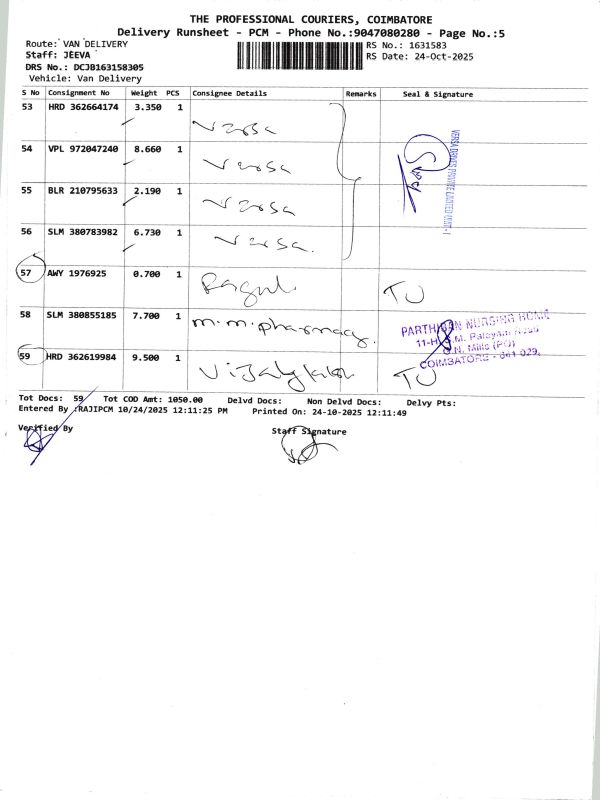 THE PROFESSIONAL COURIERS, COIMBATORE
Delivery Runsheet - PCM - Phone No.:9047080280 - Page No.:5
Route: VAN DELIVERY
RS No.: 1631583
Staff: JEEVA
RS Date: 24-Oct-2025
DRS No.: DCJB163158305
Vehicle: Van Delivery
S No Consignment No Weight PCS Consignee Details Remarks Seal & Signature
53 HRD 362664174 3.350 1
Versa
54 VPL 972047240 8.660 1
Versa
55 BLR 210795633 2.190 1
Versa
56 SLM 380783982 6.730 1
Versa.
VERSA DRIVES PRIVATE LIMITED UNIT - I
57 AWY 1976925 0.700 1
Ragul TU
58 SLM 380855185 7.700 1
m.m.pharmacy.
PARTHIBAN NURSING HOME
COIMBATORE - 641 029.
59 HRD 362619984 9.500 1
TU
Tot Docs: 59 Tot COD Amt: 1050.00 Delvd Docs: Non Delvd Docs: Delvy Pts:
Entered By :RAJIPCM 10/24/2025 12:11:25 PM Printed On: 24-10-2025 12:11:49
Verified By Staff Signature